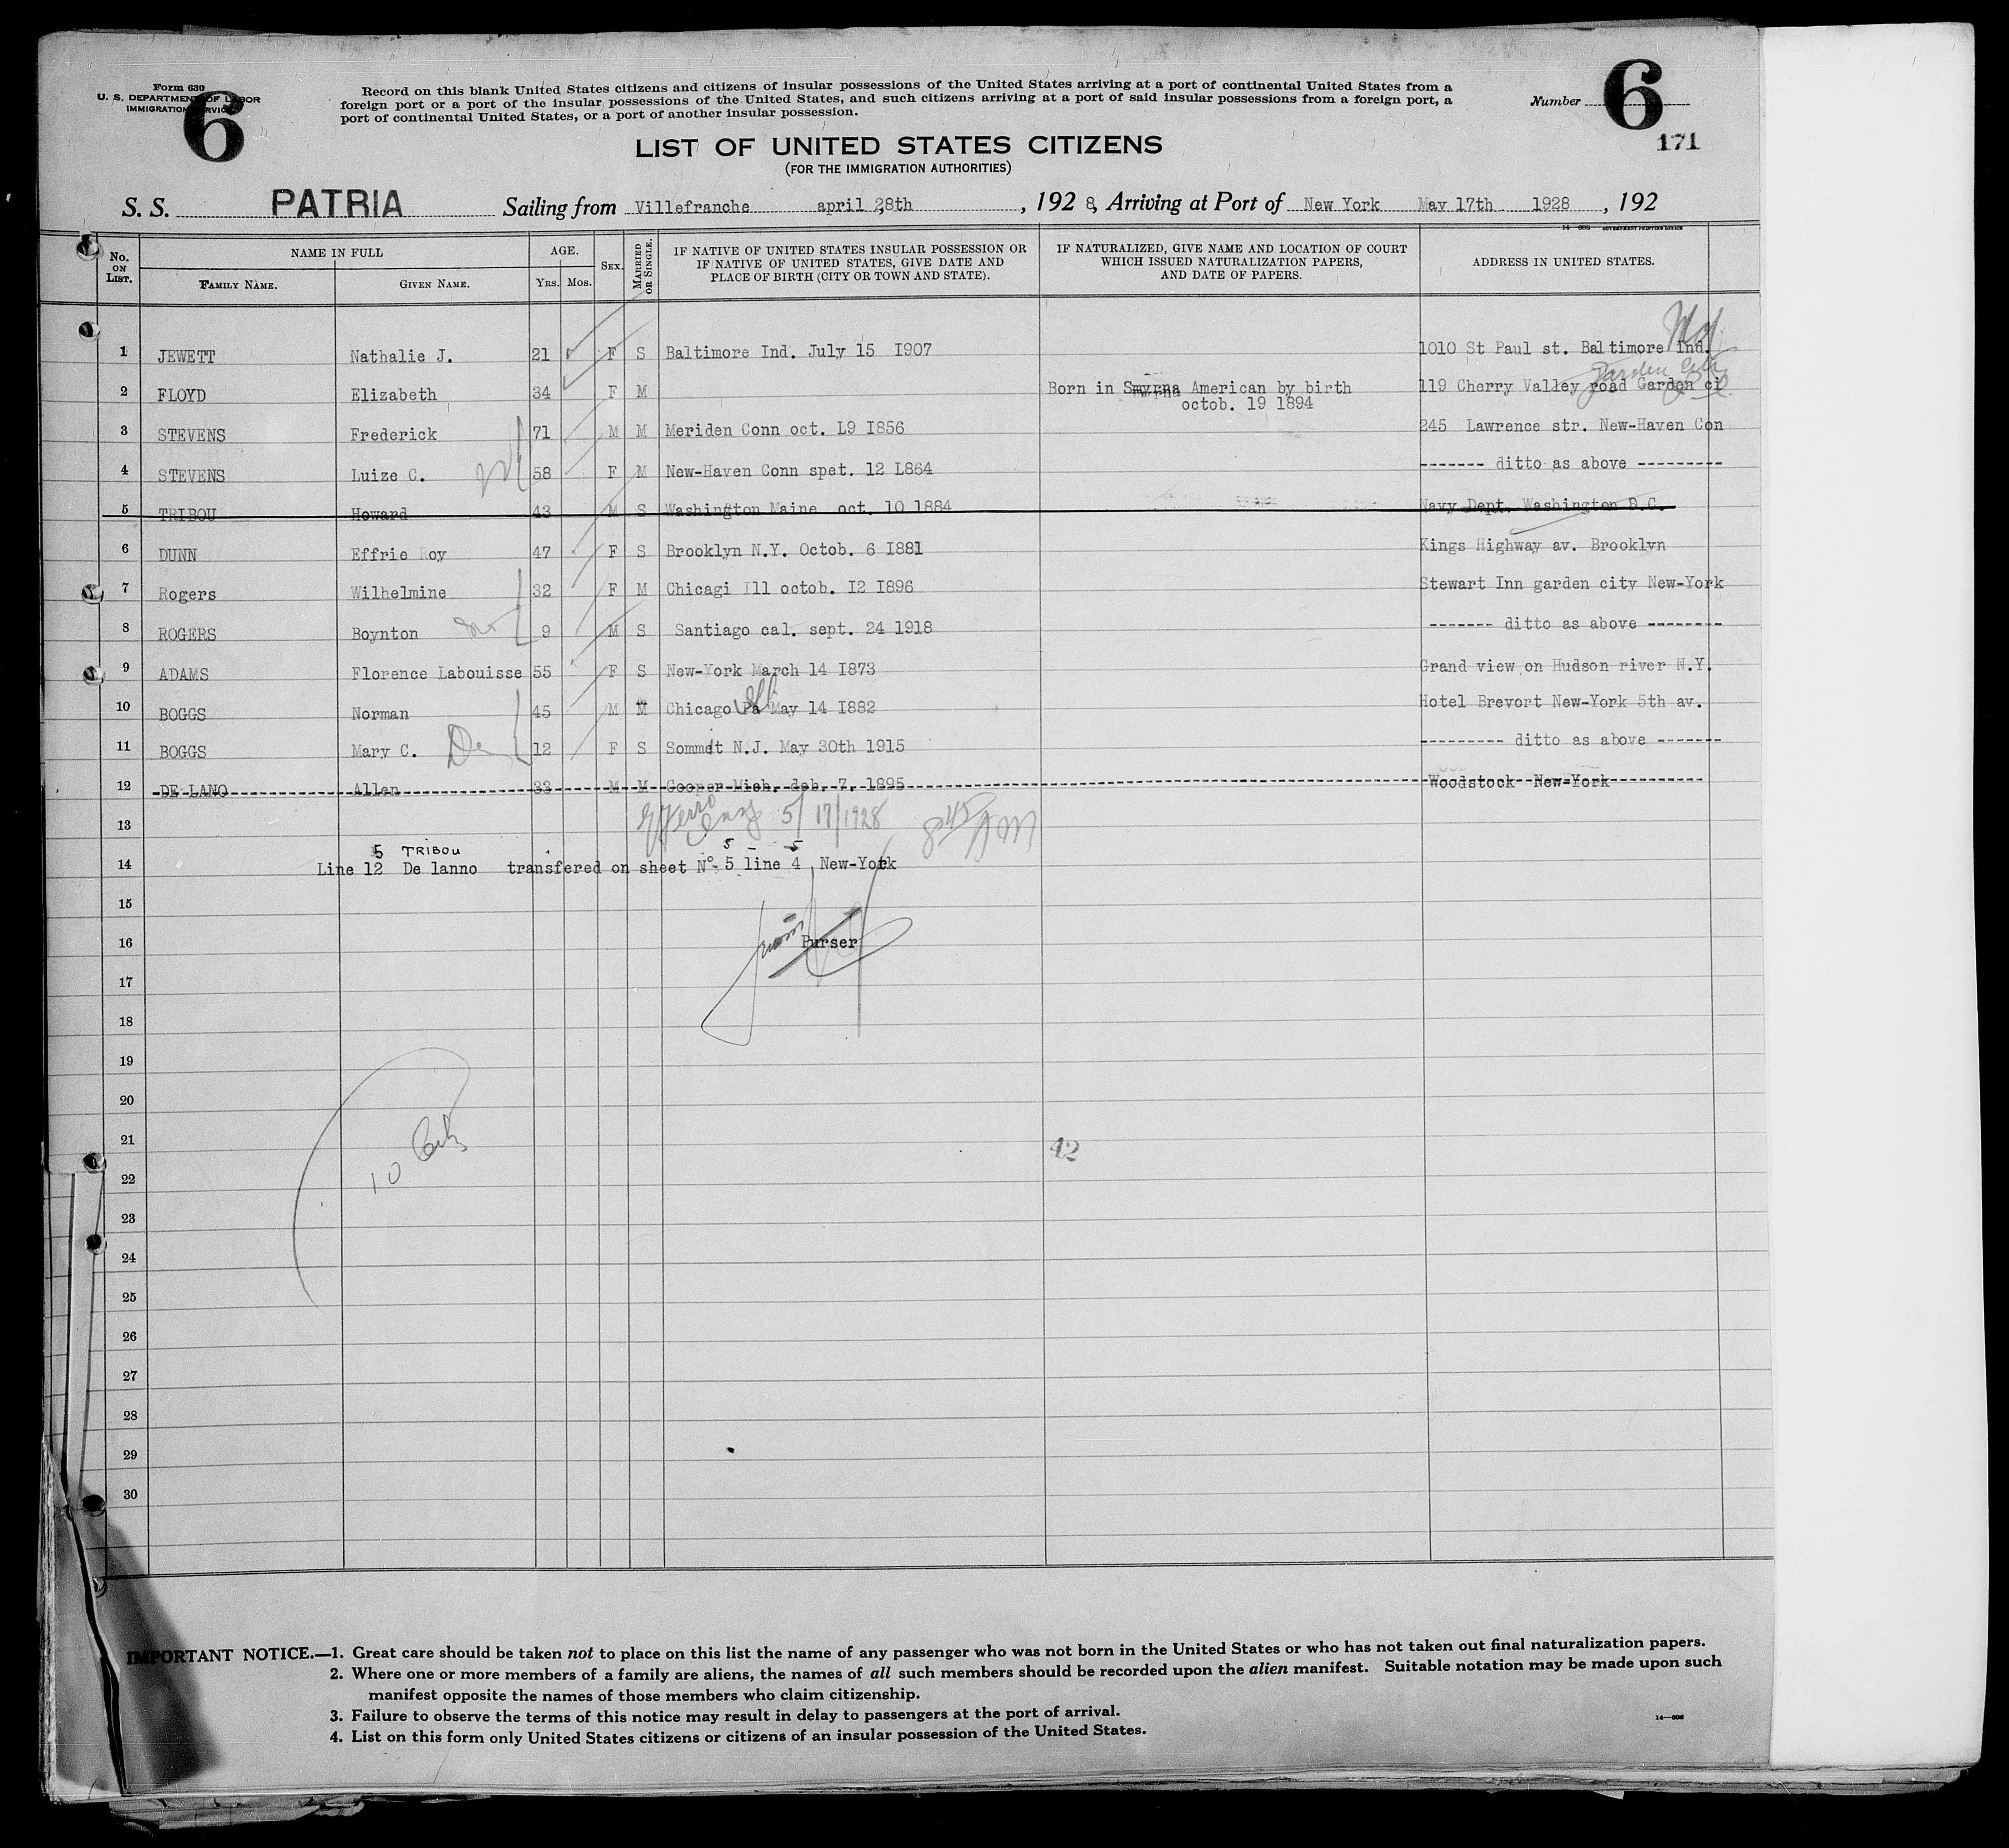 Form 630
U. S. DEPARTMENT OF LABOR
IMMIGRATION SERVICE
6
Record on this blank United States citizens and citizens of insular possessions of the United States arriving at a port of continental United States from a
foreign port or a port of the insular possessions of the United States, and such citizens arriving at a port of said insular possessions from a foreign port, a
port of continental United States, or a port of another insular possession.
Number 6
171
LIST OF UNITED STATES CITIZENS
(FOR THE IMMIGRATION AUTHORITIES)
S. S. PATRIA Sailing from Villefranche april 28th, 192 8, Arriving at Port of New York May 17th 1928, 192
14—608 GOVERNMENT PRINTING OFFICE
No. ON LIST. NAME IN FULL FAMILY NAME. GIVEN NAME. AGE. YRS. MOS. SEX. MARRIED OR SINGLE. IF NATIVE OF UNITED STATES INSULAR POSSESSION OR IF NATIVE OF UNITED STATES, GIVE DATE AND PLACE OF BIRTH (CITY OR TOWN AND STATE). IF NATURALIZED, GIVE NAME AND LOCATION OF COURT WHICH ISSUED NATURALIZATION PAPERS, AND DATE OF PAPERS. ADDRESS IN UNITED STATES.
Md
1 JEWETT Nathalie J. 21 F S Baltimore Ind. July 15 I907 1010 St Paul st. Baltimore Ind.
Garden City
2 FLOYD Elizabeth 34 F M Born in Smyrna American by birth 119 Cherry Valley road Garden ci
octob. 19 1894
3 STEVENS Frederick 71 M M Meriden Conn oct. L9 I856 245 Lawrence str. New-Haven Con
4 STEVENS Luize C. 58 F M New-Haven Conn spet. 12 L864 ------- ditto as above ---------
5 TRIBOU Howard 43 M S Washington Maine oct. 10 1884 Navy Dept. Washington D.C.
6 DUNN Effrie Roy 47 F S Brooklyn N.Y. Octob. 6 I881 Kings Highway av. Brooklyn
7 Rogers Wilhelmine 32 F M Chicagi Ill octob. I2 I896 Stewart Inn garden city New-York
8 ROGERS Boynton 9 M S Santiago cal. sept. 24 1918 ------- ditto as above --------
9 ADAMS Florence Labouisse 55 F S New-York March 14 I873 Grand view on Hudson river N.Y.
10 BOGGS Norman 45 M M Chicago Pa Ill May 14 I882 Hotel Brevort New-York 5th av.
11 BOGGS Mary C. 12 F S Sommit N.J. May 30th 1915 --------- ditto as above -------
12 DE LANO Allen 33 M M Cooper Mich. deb. 7. 1895 Woodstock New-York
13 5/17/1928 8 45 AM
5 TRIBOU 5 - 5
14 Line 12 De lanno transfered on sheet N° 5 line 4 New-York
15
16 Purser
17
18
19
20
21 42
10
22
23
24
25
26
27
28
29
30
IMPORTANT NOTICE.—1. Great care should be taken not to place on this list the name of any passenger who was not born in the United States or who has not taken out final naturalization papers.
2. Where one or more members of a family are aliens, the names of all such members should be recorded upon the alien manifest. Suitable notation may be made upon such
manifest opposite the names of those members who claim citizenship.
3. Failure to observe the terms of this notice may result in delay to passengers at the port of arrival.
4. List on this form only United States citizens or citizens of an insular possession of the United States.
14—608